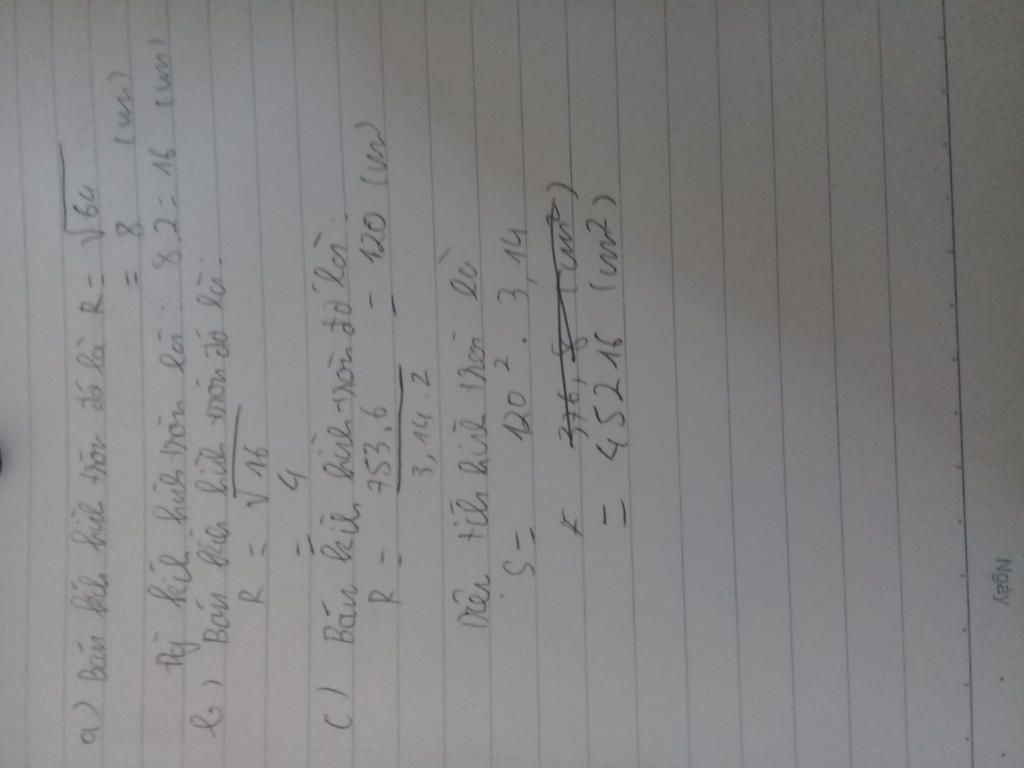 a) Bán kính hình tròn đó là R = √64
= 8 (cm)
kính hình tròn là: 8.2 = 16 (cm)
b) Bán kính hình tròn đó là:
R = √16
= 4
c) Bán kính hình tròn đó là:
R = 753,6 / 3,14.2 = 120 (cm)
Diện tích hình tròn là
S = 120². 3,14
376,8 (cm²)
= 45216 (cm2)
Ngày